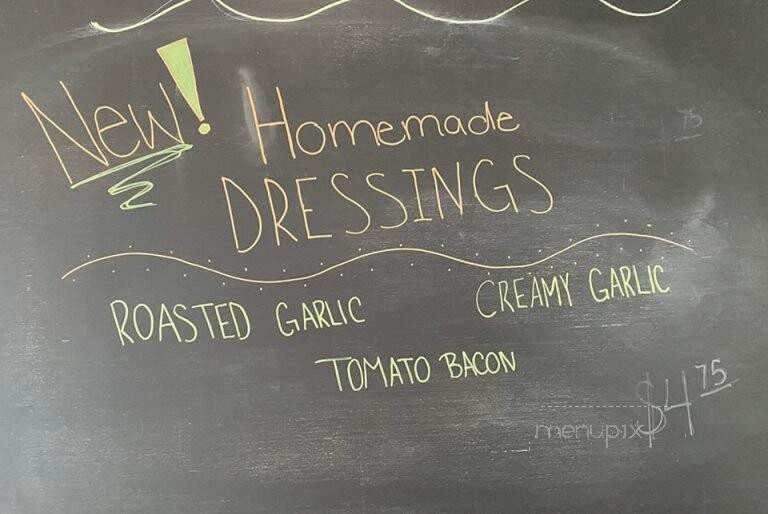 New! Homemade
DRESSINGS
ROASTED GARLIC CREAMY GARLIC
TOMATO BACON
$4.75
menupix
75